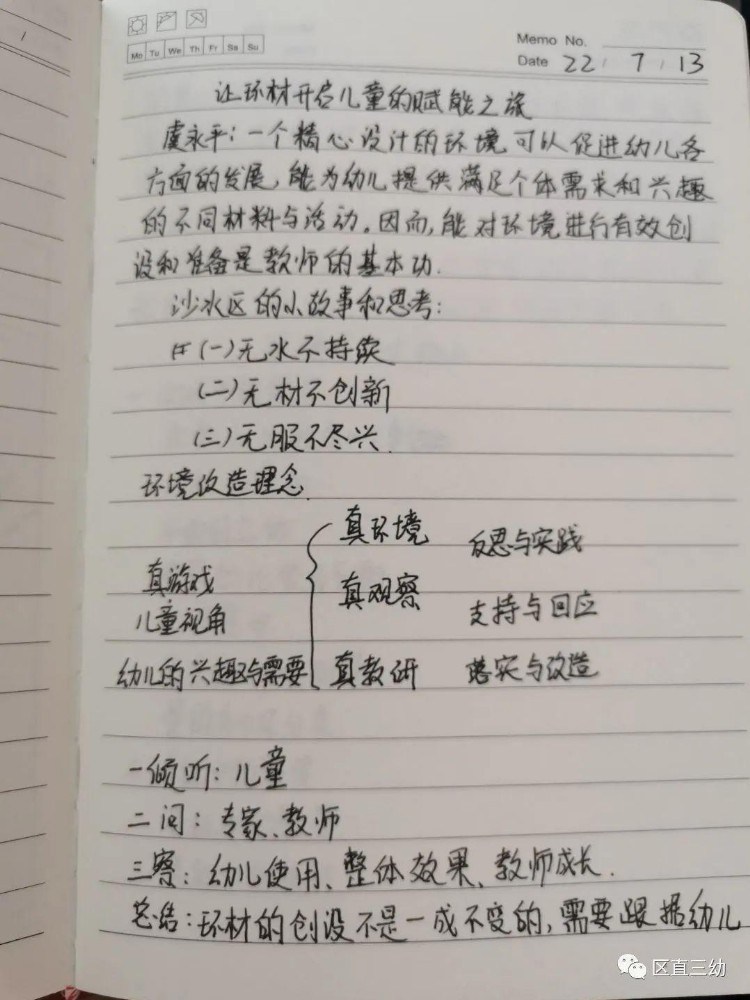 Mo Tu We Th Fr Sa Su
Memo No.
Date 22 / 7 / 13
让环材开启儿童的赋能之旅
虞永平：一个精心设计的环境可以促进幼儿各
方面的发展，能为幼儿提供满足个体需求和兴趣
的不同材料与活动。因而，能对环境进行有效创
设和准备是教师的基本功.
沙水区的小故事和思考：
(一)无水不持续
(二)无材不创新
(三)无服不尽兴.
环境改造理念.
真环境 反思与实践
真游戏 真观察
儿童视角 支持与回应
幼儿的兴趣与需要 真教研 落实与改造
一倾听：儿童
二问：专家、教师
三察：幼儿使用、整体效果、教师成长.
总结：环材的创设不是一成不变的，需要跟据幼儿
区直三幼